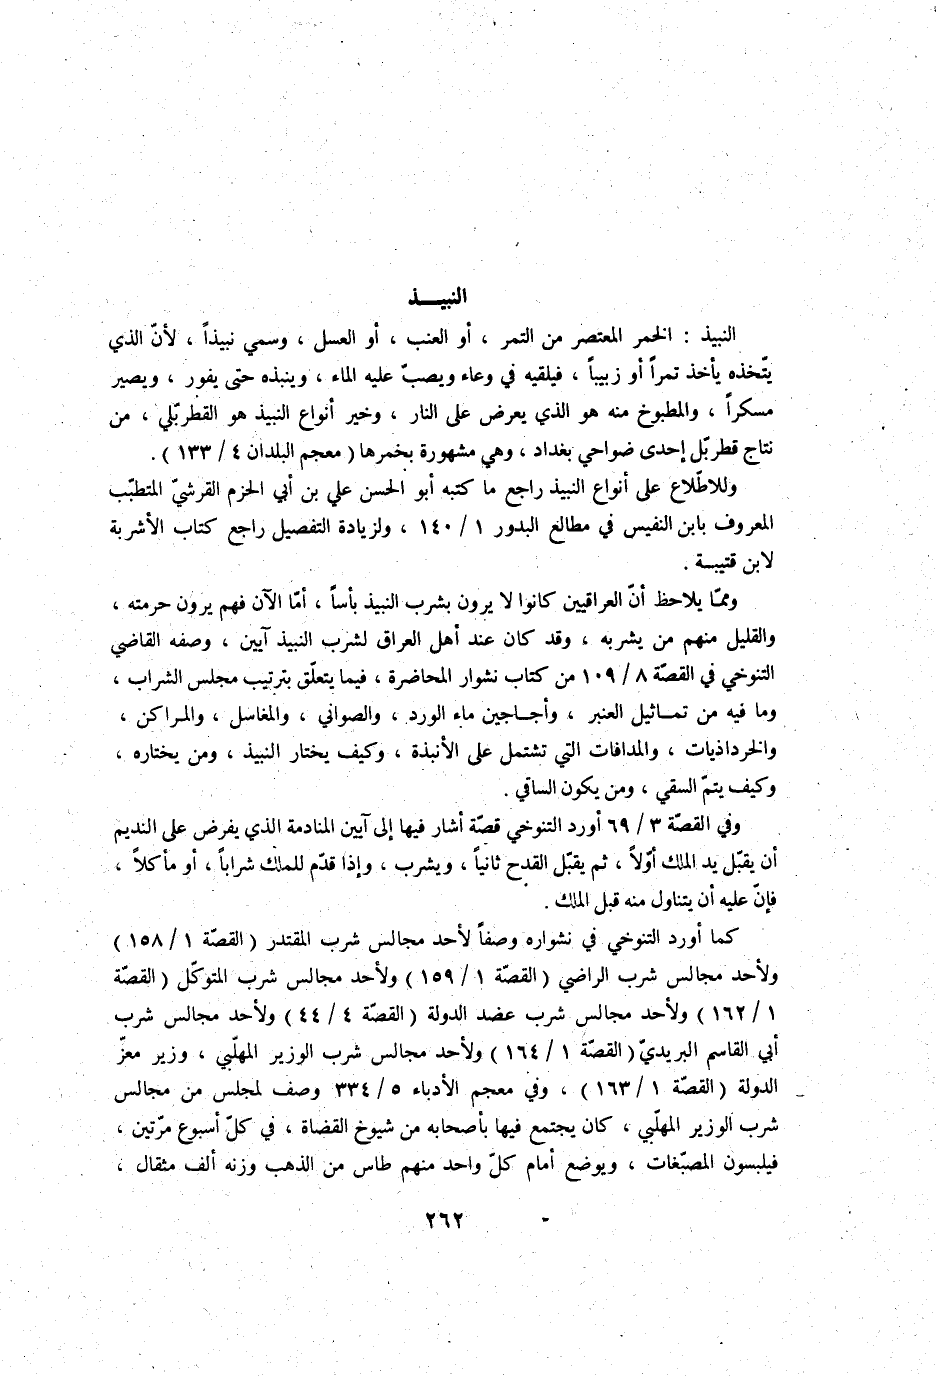 النبيـــذ
النبيذ : الخمر المعتصر من التمر ، أو العنب ، أو العسل ، وسمي نبيذاً ، لأنّ الذي
يتّخذه يأخذ تمراً أو زبيباً ، فيلقيه في وعاء ويصبّ عليه الماء ، وينبذه حتى يفور ، ويصير
مسكراً ، والمطبوخ منه هو الذي يعرض على النار ، وخير أنواع النبيذ هو القطربّلي ، من
نتاج قطربّل إحدى ضواحي بغداد ، وهي مشهورة بخمرها ( معجم البلدان ٤ / ١٣٣ ) .
وللاطّلاع على أنواع النبيذ راجع ما كتبه أبو الحسن علي بن أبي الحزم القرشيّ المتطبّب
المعروف بابن النفيس في مطالع البدور ١ / ١٤٠ ، ولزيادة التفصيل راجع كتاب الأشربة
لابن قتيبـة .
وممّا يلاحظ أنّ العراقيين كانوا لا يرون بشرب النبيذ بأساً ، أمّا الآن فهم يرون حرمته ،
والقليل منهم من يشربه ، وقد كان عند أهل العراق لشرب النبيذ آيين ، وصفه القاضي
التنوخي في القصّة ٨ / ١٠٩ من كتاب نشوار المحاضرة ، فيما يتعلّق بترتيب مجلس الشراب ،
وما فيه من تمـاثيل العنبر ، وأجـاجين ماء الورد ، والصواني ، والمغاسل ، والمـراكن ،
والخرداذيات ، والمدافات التي تشتمل على الأنبذة ، وكيف يختار النبيذ ، ومن يختاره ،
وكيف يتمّ السقي ، ومن يكون الساقي .
وفي القصّة ٣ / ٦٩ أورد التنوخي قصّة أشار فيها إلى آيين المنادمة الذي يفرض على النديم
أن يقبّل يد الملك أوّلاً ، ثم يقبّل القدح ثانياً ، ويشرب ، وإذا قدّم للملك شراباً ، أو مأكلاً ،
فإنّ عليه أن يتناول منه قبل الملك .
كما أورد التنوخي في نشواره وصفاً لأحد مجالس شرب المقتدر ( القصّة ١ / ١٥٨ )
ولأحد مجالس شرب الراضي ( القصّة ١ / ١٥٩ ) ولأحد مجالس شرب المتوكّل ( القصّة
١ / ١٦٢ ) ولأحد مجالس شرب عضد الدولة ( القصّة ٤ / ٤٤ ) ولأحد مجالس شرب
أبي القاسم البريديّ ( القصّة ١ / ١٦٤ ) ولأحد مجالس شرب الوزير المهلّبي ، وزير معزّ
الدولة ( القصّة ١ / ١٦٣ ) ، وفي معجم الأدباء ٥ / ٣٣٤ وصف لمجلس من مجالس
شرب الوزير المهلّبي ، كان يجتمع فيها بأصحابه من شيوخ القضاة ، في كلّ أسبوع مرّتين ،
فيلبسون المصبّغات ، ويوضع أمام كلّ واحد منهم طاس من الذهب وزنه ألف مثقال ،
٢٦٢